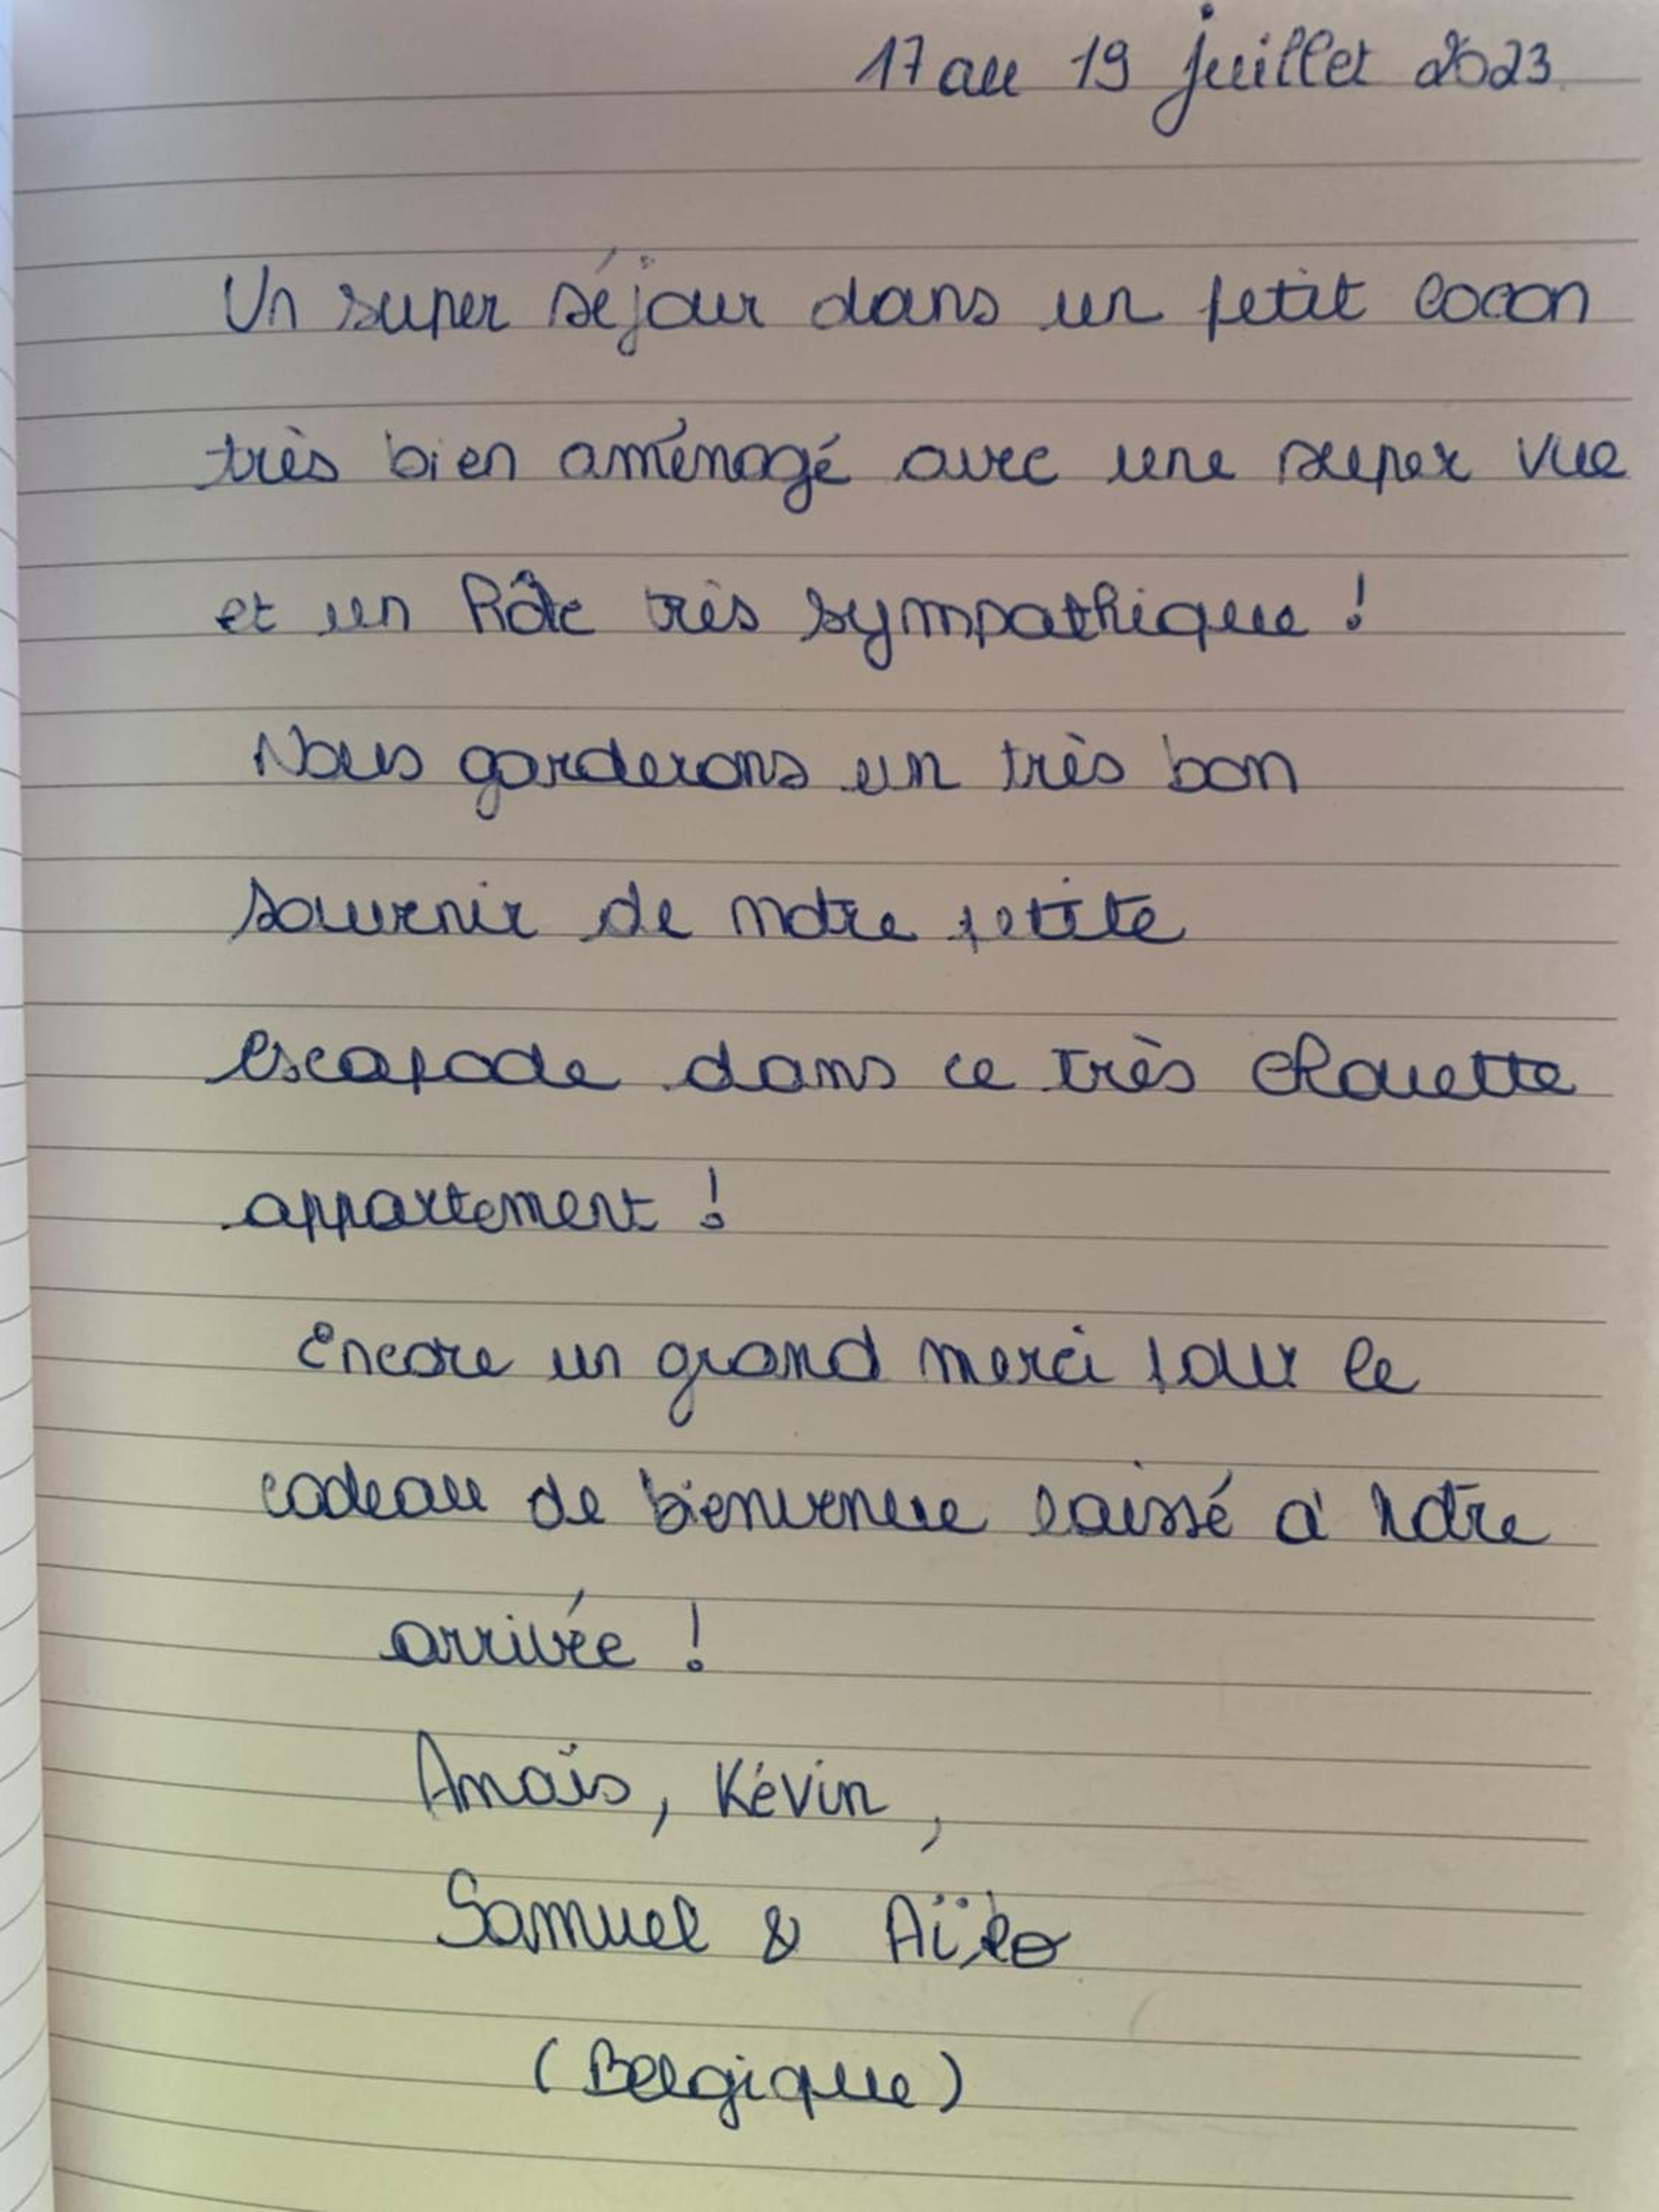 17 au 19 juillet 2023
Un super séjour dans un petit cocon
très bien aménagé avec une super vue
et un hôte très sympathique !
Nous garderons un très bon
souvenir de notre petite
escapade dans ce très chouette
appartement !
Encore un grand merci pour le
cadeau de bienvenue laissé à notre
arrivée !
Anaïs, Kévin,
Samuel &
(Belgique)